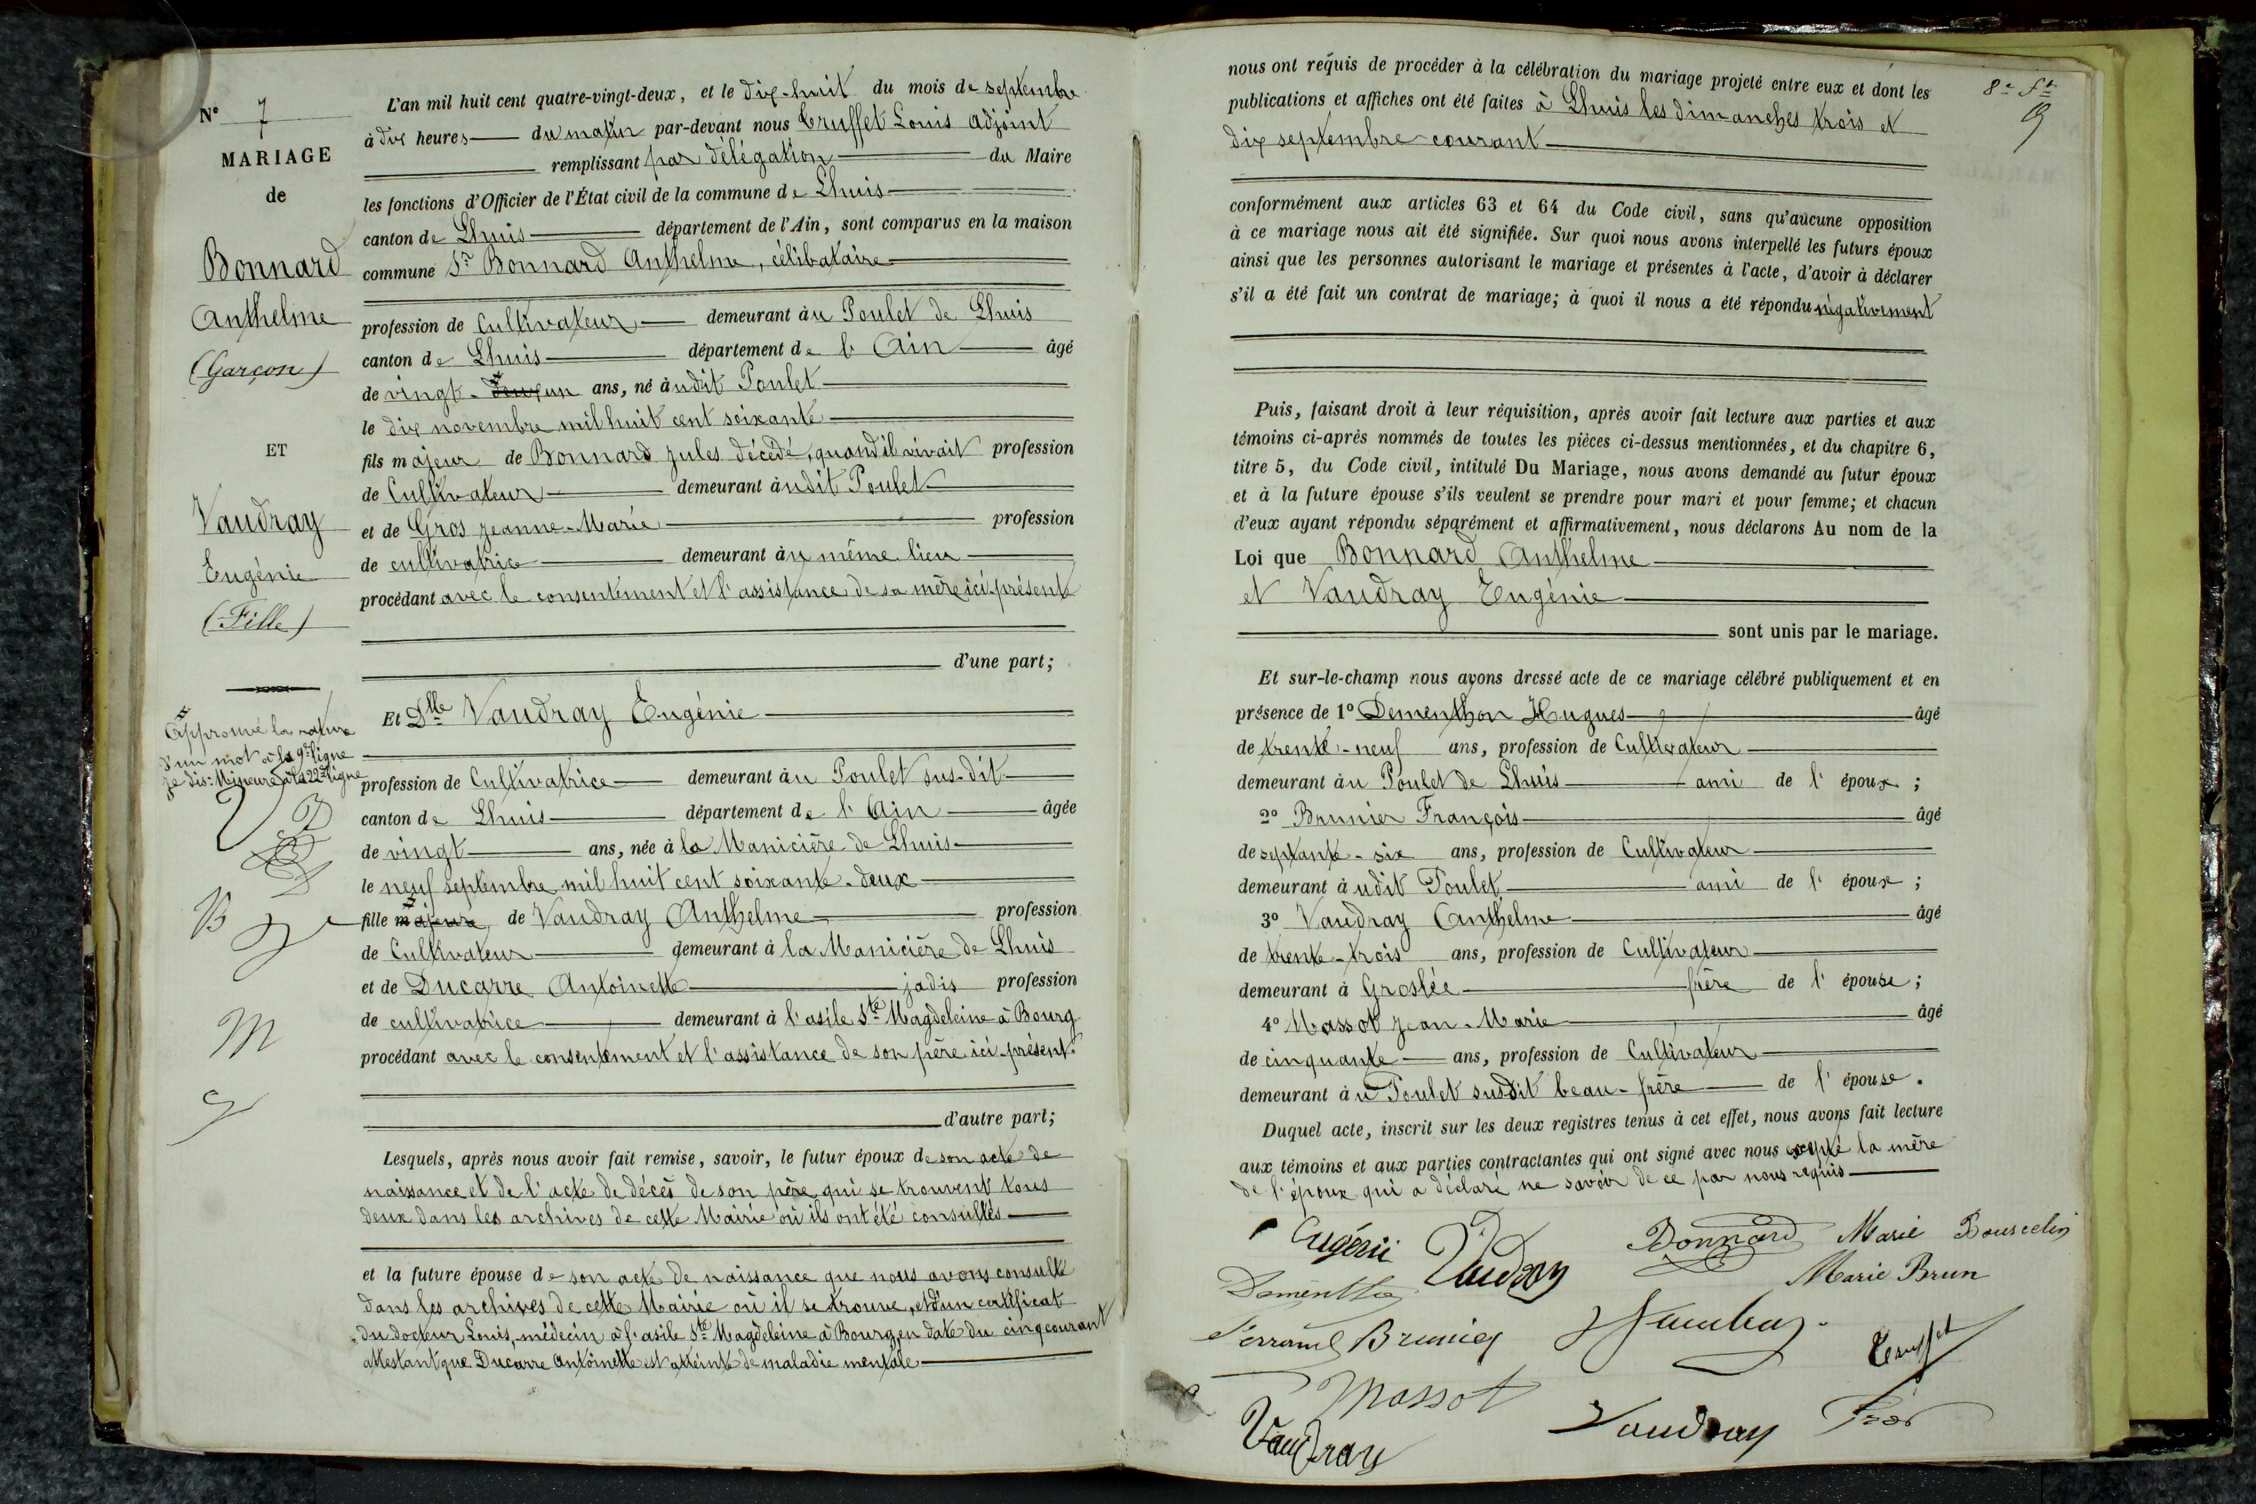 N° 7
MARIAGE
de
Bonnard
Anthelme
(Garçon)
ET
Vaudray
Eugénie
(Fille)
Approuvé la rature
d'un mot à la 9e ligne
je dis: Mineure à la 22e ligne
B
M
L'an mil huit cent quatre-vingt-deux, et le dix-huit du mois de septembre
à dix heures du matin par-devant nous Truffet Louis adjoint
remplissant par délégation du Maire
les fonctions d'Officier de l'État civil de la commune de Lhuis
canton de Lhuis département de l'Ain, sont comparus en la maison
commune Sr Bonnard Anthelme, célibataire
profession de Cultivateur demeurant au Poulet de Lhuis
canton de Lhuis département de l'Ain âgé
de vingt-un ans, né audit Poulet
le dix novembre mil huit cent soixante
fils majeur de Bonnard Jules décédé, quand il vivait profession
de Cultivateur demeurant audit Poulet
et de Gros Jeanne-Marie profession
de cultivatrice demeurant au même lieu
procédant avec le consentement et l'assistance de sa mère ici présente
d'une part;
Et Dlle Vaudray Eugénie
profession de Cultivatrice demeurant au Poulet sus-dit
canton de Lhuis département de l'Ain âgée
de vingt ans, née à la Manicière de Lhuis
le neuf septembre mil huit cent soixante-deux
fille majeure de Vaudray Anthelme profession
de Cultivateur demeurant à la Manicière de Lhuis
et de Ducarre Antoinette jadis profession
de cultivatrice demeurant à l'asile Ste Magdeleine à Bourg
procédant avec le consentement et l'assistance de son père ici présent.
d'autre part;
Lesquels, après nous avoir fait remise, savoir, le futur époux de son acte de
naissance et de l'acte de décès de son père qui se trouvent tous
deux dans les archives de cette Mairie où ils ont été consultés
et la future épouse de son acte de naissance que nous avons consulté
dans les archives de cette Mairie où il se trouve, et d'un certificat
du docteur Louis, médecin à l'asile Ste Magdeleine à Bourg, en date du cinq courant
attestant que Ducarre Antoinette est atteinte de maladie mentale
8e ft
nous ont requis de procéder à la célébration du mariage projeté entre eux et dont les
publications et affiches ont été faites à Lhuis les dimanches trois et
dix septembre courant
conformément aux articles 63 et 64 du Code civil, sans qu'aucune opposition
à ce mariage nous ait été signifiée. Sur quoi nous avons interpellé les futurs époux
ainsi que les personnes autorisant le mariage et présentes à l'acte, d'avoir à déclarer
s'il a été fait un contrat de mariage; à quoi il nous a été répondu négativement
Puis, faisant droit à leur réquisition, après avoir fait lecture aux parties et aux
témoins ci-après nommés de toutes les pièces ci-dessus mentionnées, et du chapitre 6,
titre 5, du Code civil, intitulé Du Mariage, nous avons demandé au futur époux
et à la future épouse s'ils veulent se prendre pour mari et pour femme; et chacun
d'eux ayant répondu séparément et affirmativement, nous déclarons Au nom de la
Loi que Bonnard Anthelme
et Vaudray Eugénie
sont unis par le mariage.
Et sur-le-champ nous avons dressé acte de ce mariage célébré publiquement et en
présence de 1° Dementhon Hugues âgé
de trente-neuf ans, profession de Cultivateur
demeurant au Poulet de Lhuis ami de l'époux;
2° Brunier François âgé
de septante-six ans, profession de Cultivateur
demeurant audit Poulet ami de l'époux;
3° Vaudray Anthelme âgé
de trente-trois ans, profession de Cultivateur
demeurant à Groslée frère de l'épouse;
4° Massot Jean-Marie âgé
de cinquante ans, profession de Cultivateur
demeurant au Poulet susdit beau-frère de l'épouse.
Duquel acte, inscrit sur les deux registres tenus à cet effet, nous avons fait lecture
aux témoins et aux parties contractantes qui ont signé avec nous excepté la mère
de l'époux qui a déclaré ne savoir de ce par nous requis
Eugénie Vaudray Bonnard Marie Bourcelin
Dementhon Marie Brun
Brunier Truffet
Massot
Vaudray Vaudray